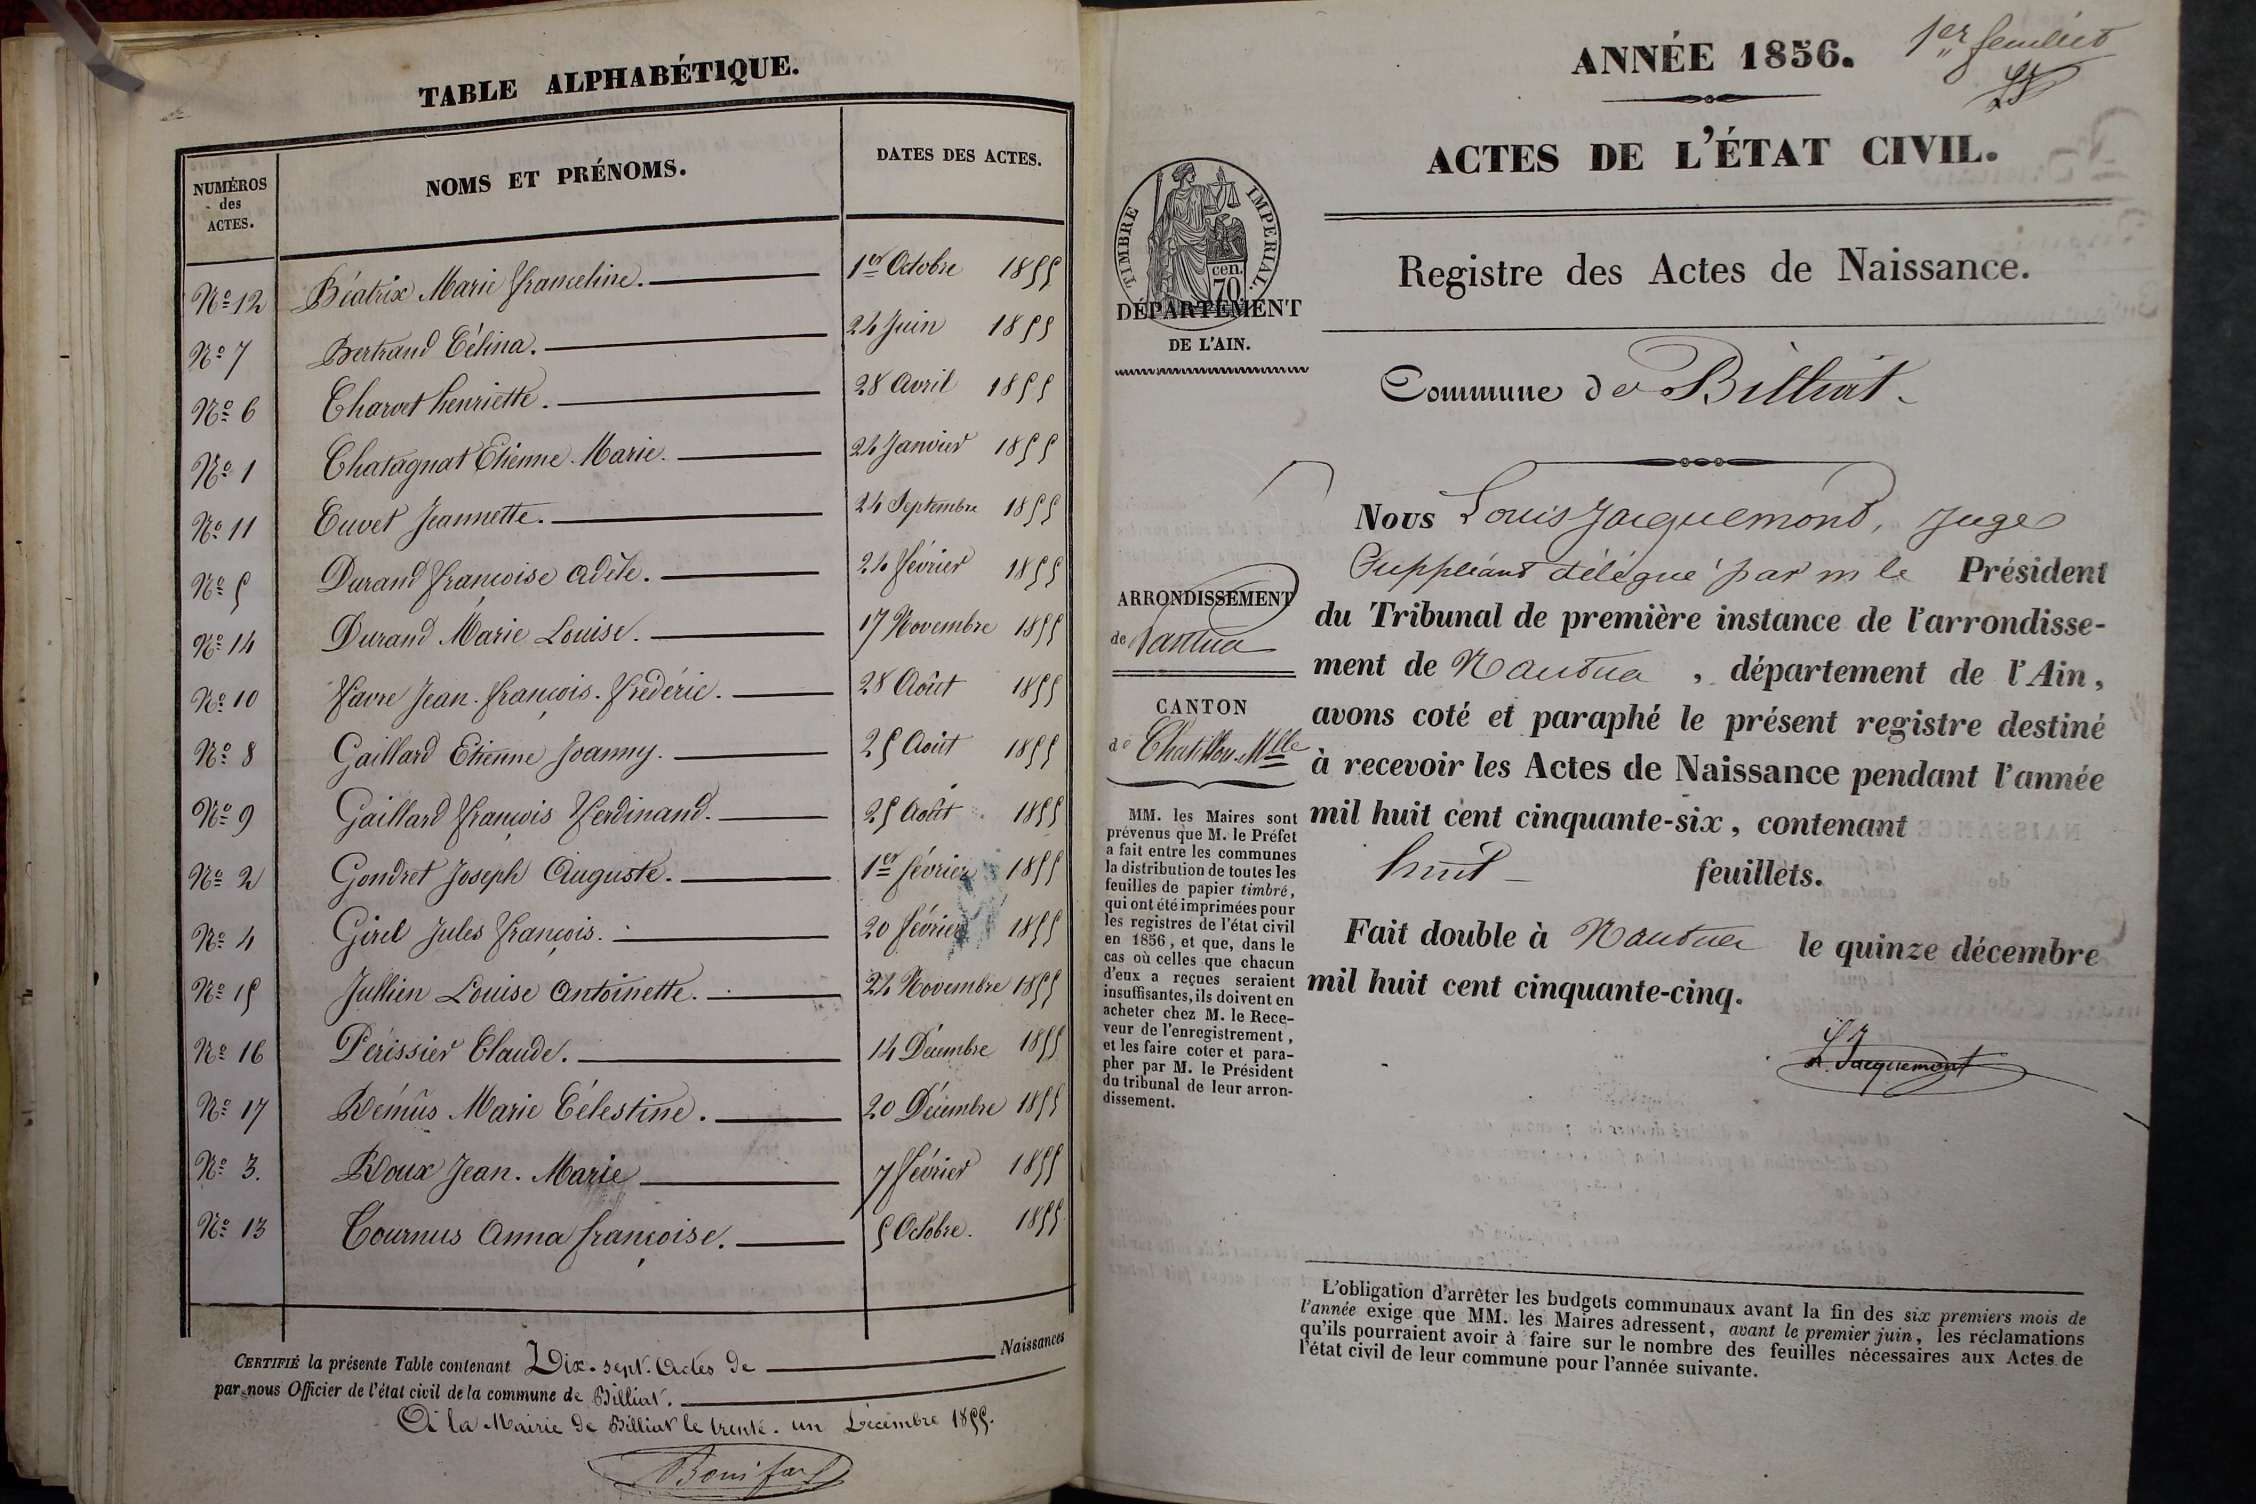 TABLE ALPHABÉTIQUE.
NUMÉROS des ACTES.
NOMS ET PRÉNOMS.
DATES DES ACTES.
No 12 Béatrix Marie Franceline. 1er Octobre 1855
No 7 Bertrand Célina. 24 Juin 1855
No 6 Charvet henriette. 28 Avril 1855
No 1 Chatagnat Etienne Marie. 24 Janvier 1855
No 11 Cuvet Jeannette. 24 Septembre 1855
No 5 Durand Françoise Adèle. 24 février 1855
No 14 Durand Marie Louise. 17 Novembre 1855
No 10 Favre Jean. François. Frédéric. 28 Août 1855
No 8 Gaillard Etienne Joanny. 25 Août 1855
No 9 Gaillard François Ferdinand. 25 Août 1855
No 2 Gondret Joseph Auguste. 1er février 1855
No 4 Girel Jules François. 20 février 1855
No 15 Jullien Louise Antoinette. 24 Novembre 1855
No 16 Périssier Claude. 14 Décembre 1855
No 17 Rémus Marie Célestine. 20 Décembre 1855
No 3. Roux Jean. Marie 7 février 1855
No 13 Tournus Anna françoise. 5 Octobre. 1855
CERTIFIÉ la présente Table contenant Dix-sept. Actes de Naissances
par nous Officier de l'état civil de la commune de Billiat.
A la Mairie de Billiat le trente-un Décembre 1855.
ANNÉE 1856.
1er feuillet
ACTES DE L'ÉTAT CIVIL.
TIMBRE IMPERIAL.
cen.
70
DÉPARTEMENT
DE L'AIN.
Registre des Actes de Naissance.
Commune de Billiat
ARRONDISSEMENT
de Nantua
CANTON
de Chatillon-Mlle
MM. les Maires sont
prévenus que M. le Préfet
a fait entre les communes
la distribution de toutes les
feuilles de papier timbré,
qui ont été imprimées pour
les registres de l'état civil
en 1856, et que, dans le
cas où celles que chacun
d'eux a reçues seraient
insuffisantes, ils doivent en
acheter chez M. le Rece-
veur de l'enregistrement,
et les faire coter et para-
pher par M. le Président
du tribunal de leur arron-
dissement.
Nous Louis Jacquemond, Juge
Suppléant délégué par m le Président
du Tribunal de première instance de l'arrondisse-
ment de Nantua, département de l'Ain,
avons coté et paraphé le présent registre destiné
à recevoir les Actes de Naissance pendant l'année
mil huit cent cinquante-six, contenant
huit feuillets.
Fait double à Nantua le quinze décembre
mil huit cent cinquante-cinq.
L. Jacquemont
L'obligation d'arrêter les budgets communaux avant la fin des six premiers mois de
l'année exige que MM. les Maires adressent, avant le premier juin, les réclamations
qu'ils pourraient avoir à faire sur le nombre des feuilles nécessaires aux Actes de
l'état civil de leur commune pour l'année suivante.